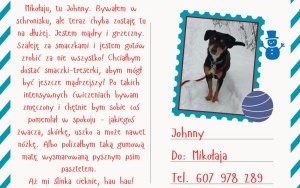 Mikołaju, tu Johnny. Bywałem w
schronisku, ale teraz chyba zostaję tu
na dłużej. Jestem mądry i grzeczny.
Szaleję za smaczkami i jestem gotów
zrobić za nie wszystko! Chciałbym
dostać smaczki-treserki, abym mógł
być jeszcze mądrzejszy! Po takich
intensywnych ćwiczeniach bywam
zmęczony i chętnie bym sobie coś
pomemłał w spokoju - jakiegoś
żwacza, skórkę, uszko a może nawet
nóżkę. Albo polizałbym taką gumową
matę wysmarowaną pysznym psim
pasztetem.
Aż mi ślinka cieknie, hau hau!
Johnny
Do: Mikołaja
Tel. 607 978 289